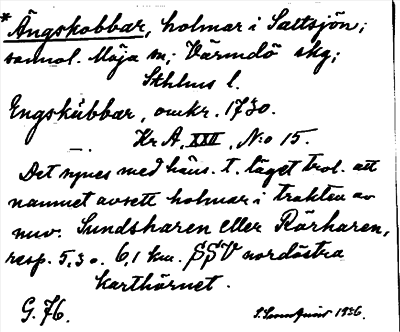 * Ängskobbar, holmar i Saltsjön;
sannol. Möja sn; Värmdö skg;
Sthlms l.
Engskübbar, omkr. 1730.
Kr A, XXII, N:o 15.
Det synes med häns. t. läget trol. att
namnet avsett holmar i trakten av
nuv. Sundsharen eller Rörharen,
resp. 5,3 o. 6,1 km. SSV nordöstra
karthörnet.
G. 76. 1926.